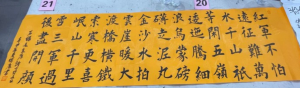 21
20
紅軍不怕
遠征難萬
水千山衹
等閒五嶺
逶迤騰細
浪烏蒙磅
礴走泥丸
金沙水拍
雲崖暖大
渡橋橫鐵
索寒更喜
岷山千里
雪三軍過
後盡開顏